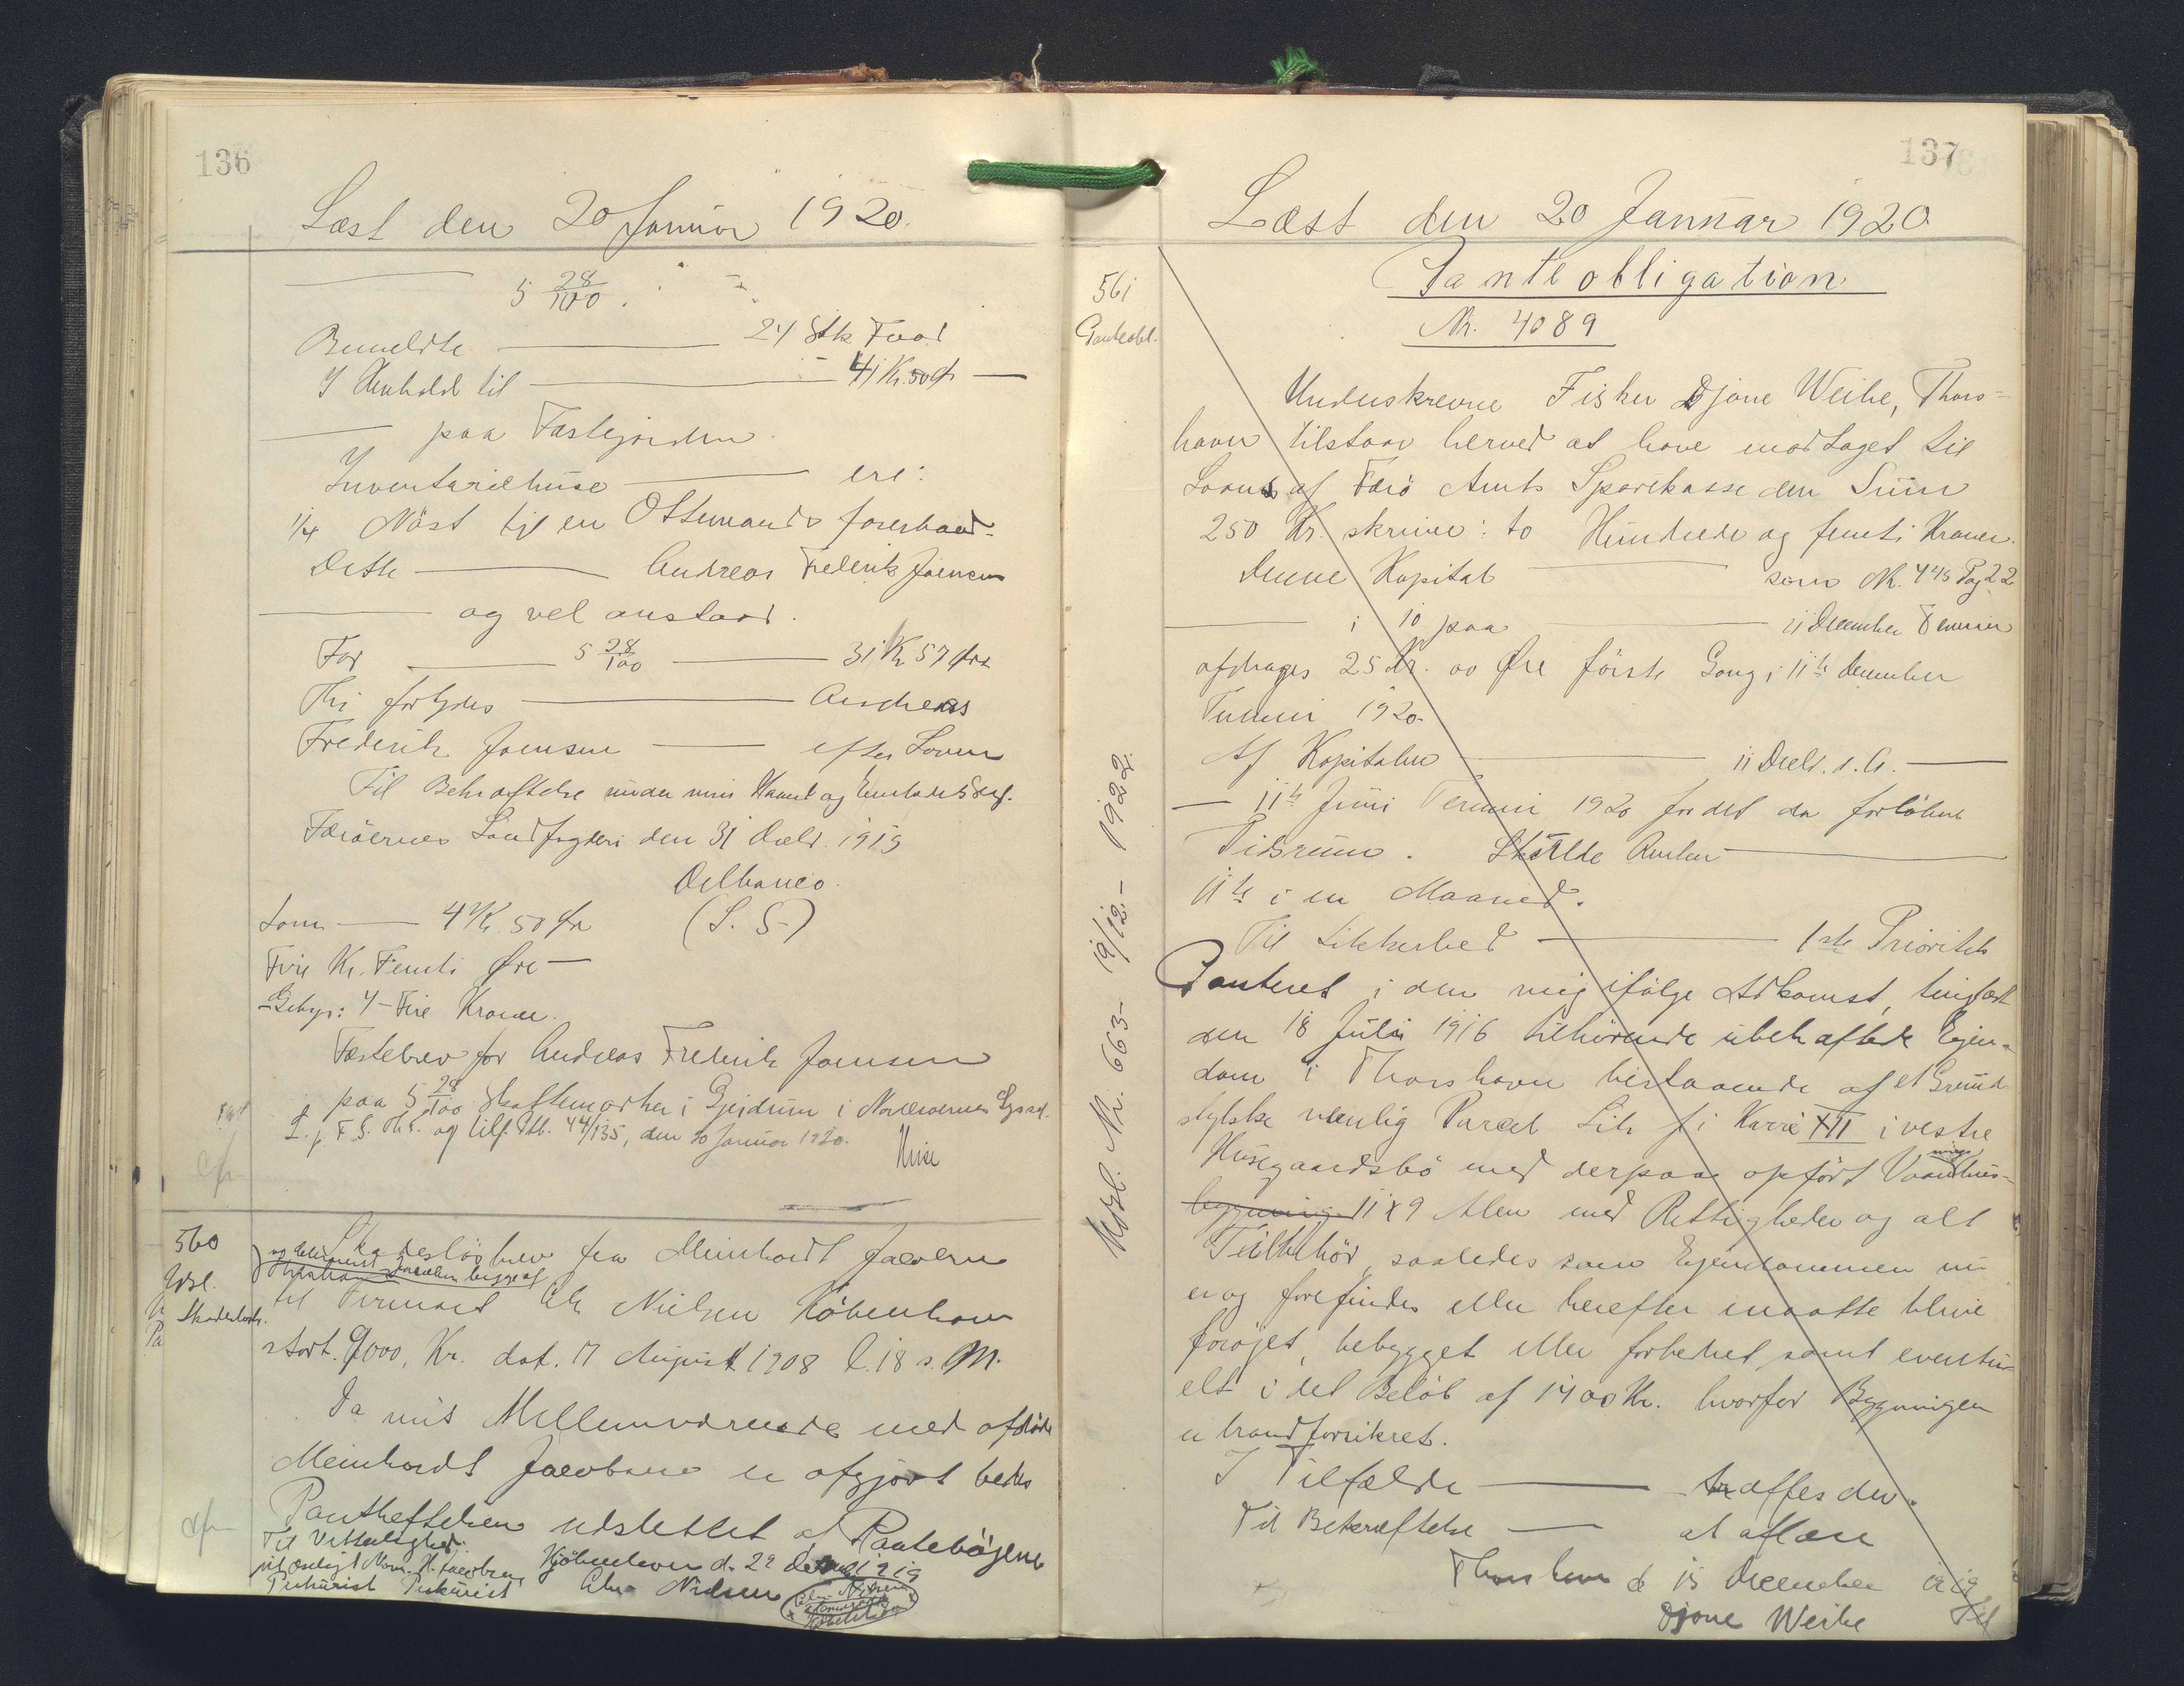 136
Læst den 20 Januar 1920.
5 28/100
Bemeldte ——— 24 Stk Faar
I Henhold til ——— 41 Kr. 50 Ø —
——— paa Fæstejorden.
Inventariehuse ——— ere:
1/4 Nöst til en Ottemands forestaad-
Dette ——— Andreas Frederik Joensen
——— og vel anstaar.
For ——— 5 28/100 ——— 31 Kr 57 Øre
Thi forbydes ——— Andreas
Frederik Joensen ——— efter Loven
Til Bekræftelse under min Haand og Embedssegl.
Færöernes Landfogderi den 31 Decbr. 1919
Delbanco.
Som ——— 4 Kr. 50 Øre (L. S.)
Fire Kr. Femti Øre —
Gebyr: 4 - Fire Kroner.
Fæstebrev for Andreas Frederik Joensen
paa 5 28/100 Skattemarker i Gjeidrum i Norderoernes Syssel
L. p. F. S. Th. og tilf. Ptb. 44/135, den 20 Januar 1920.
560
Udsl.
Skadeslösbr.
Skadeslösbrev fra Meinhardt Jacobsen
til Firmaet Chr. Nielsen Köbenhavn
stort 9000, Kr. dat. 17 August 1908 l. 18 s. M.
Da mit Mellemværende med afdöde
Meinhardt Jacobsen er afgjort bedes
Pantheftelsen udslettet af Pantebögerne
Til Vitterlighed: Kjöbenhavn d. 22 Decmbr 1919
H. Jacobsen Chr. Nielsen
Prokurist Prokurist
137
Læst den 20 Januar 1920
561
Panteobl.
Panteobligation
Nr. 4089
Underskrevne Fisker Djone Weihe, Thors=
havn tilstaar herved at have modtaget til
Laans af Færö Amts Sparekasse den Sum
250 Kr. skriver: to Hundrede og femti Kroner.
Denne Kapital ——— som Nr. 445 Pag 22
——— i 10 paa ——— 11 December Termin
afdrages 25 Kr. 00 Øre förste Gang i 11te December
Termin 1920.
Af Kapitalen ——— 11 Decbr. s. A. ———
— 11te Juni Termin 1920 for det da forlöbne
Tidsrum. Skulde Renten ———
11te i en Maaned.
Til Sikkerhed ——— 1ste Prioritets
Panteret i den mig ifölge Adkomst, tinglæst
den 18 Juli 1916 tilhörende ubehæftede Ejen-
dom i Thorshavn bestaaende af et Grund-
stykke nemlig Parcel Litr f i Karré XII i vestre
Husegaardsbö med derpaa opfört Vaanhus-
bygning 11 x 9 Alen med Rettigheder og alt
Tilbehör, saaledes som Ejendommen nu
er og forefindes eller herefter maatte blive
foröjet, bebygget eller forbedret, samt eventu-
elt i det Belöb af 1400 Kr. hvorfor Bygningen
er brandforsikret.
I Tilfælde ——— træffes der.
Til Bekræftelse —— at aflæse
Thorshavn d. 15 December 1919
Djone Weihe
Til
Udsl. Nr. 663 - 19/12 - 1922.